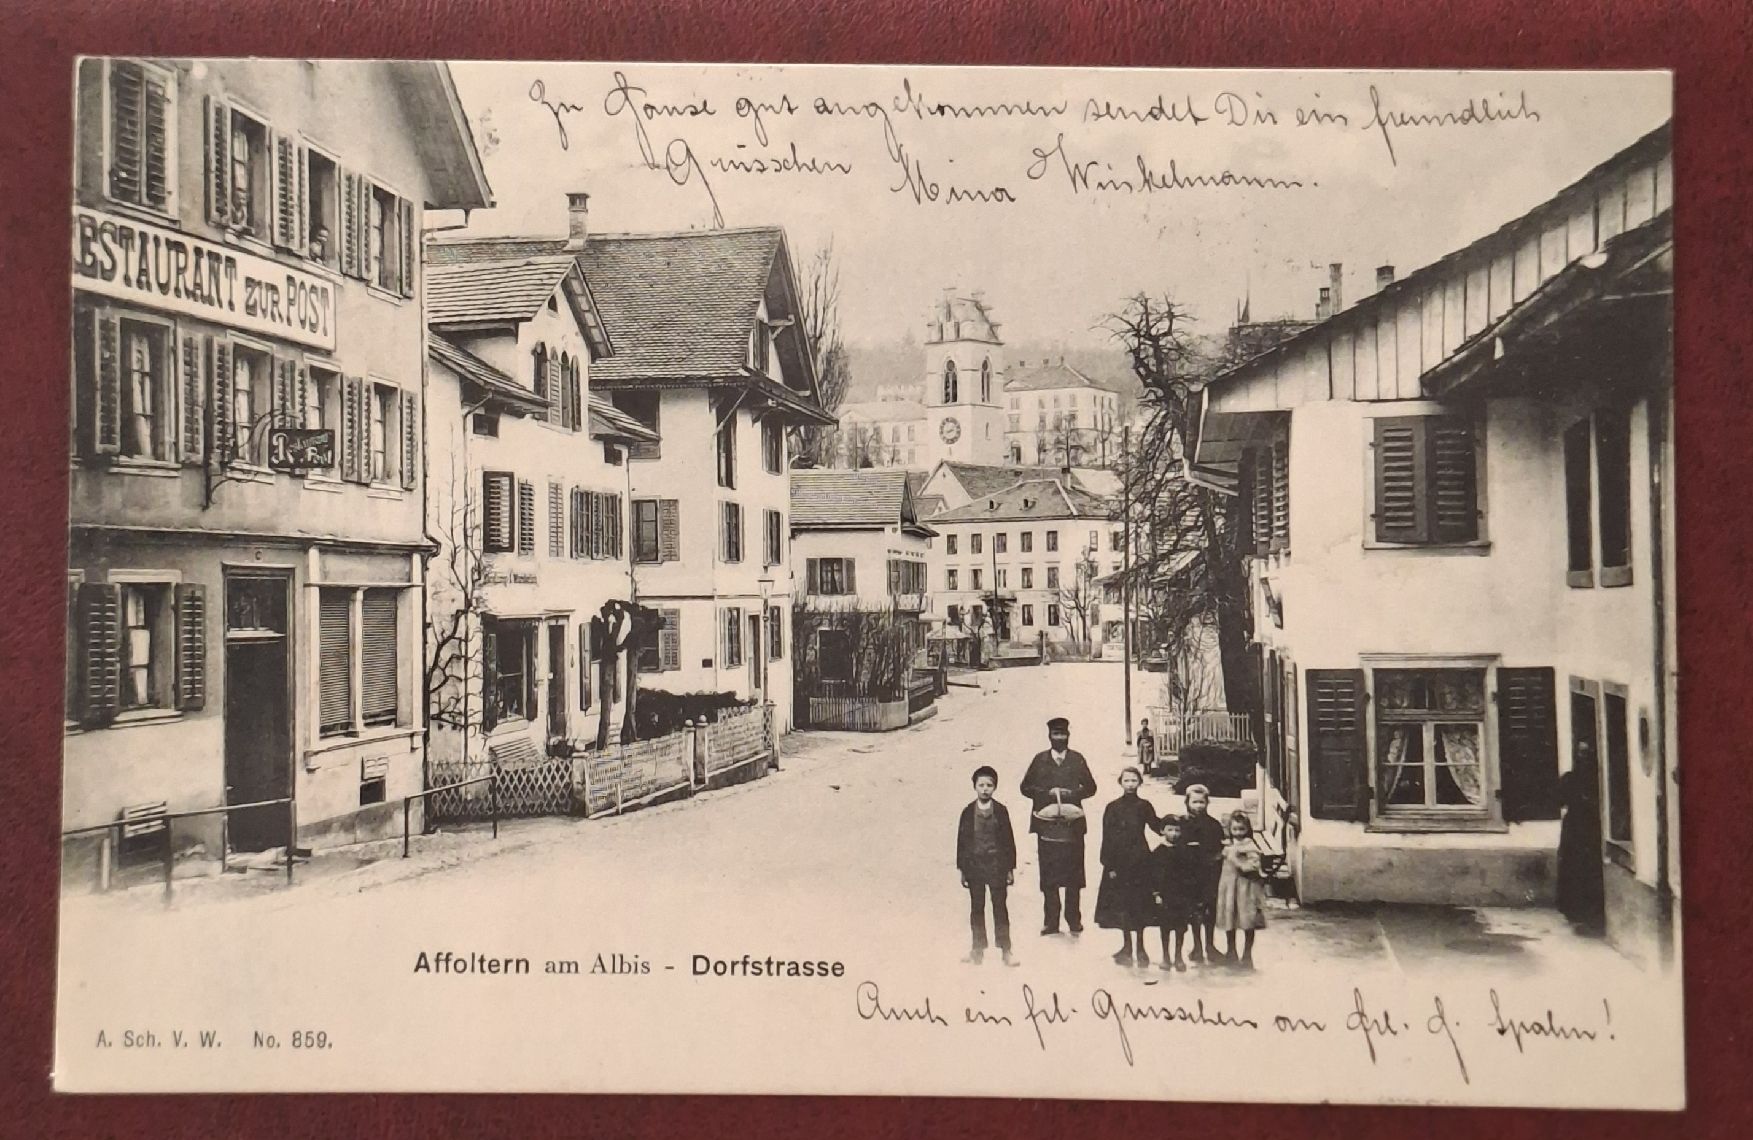 Zu Hause gut angekommen sendet Dir ein freundlich
Grüsschen Mina Winkelmann.
ESTAURANT ZUR POST
Restaurant
z. Post
Affoltern am Albis - Dorfstrasse
Auch ein frl. Grüsschen an Frl. J. Spahn!
A. Sch. V. W. No. 859.